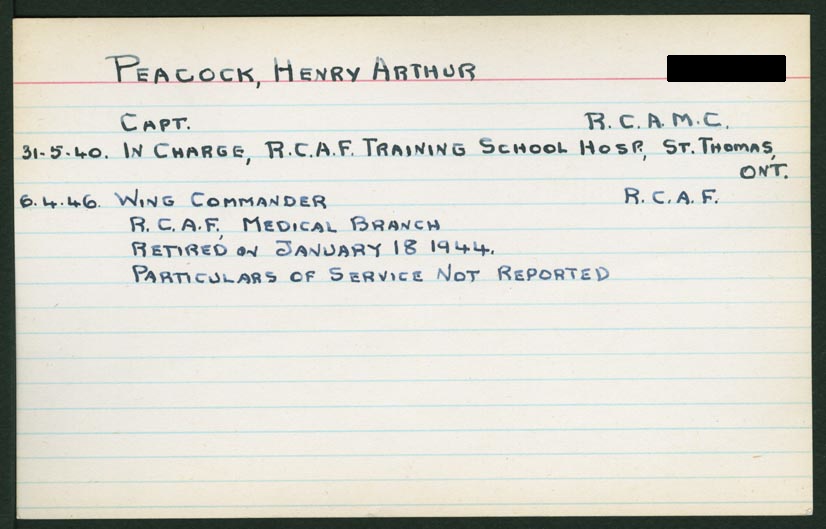 PEACOCK, HENRY ARTHUR
CAPT. R.C.A.M.C.
31-5-40. IN CHARGE, R.C.A.F. TRAINING SCHOOL HOSP, ST. THOMAS,
ONT.
6.4.46. WING COMMANDER R.C.A.F.
R.C.A.F, MEDICAL BRANCH
RETIRED ON JANUARY 18 1944.
PARTICULARS OF SERVICE NOT REPORTED